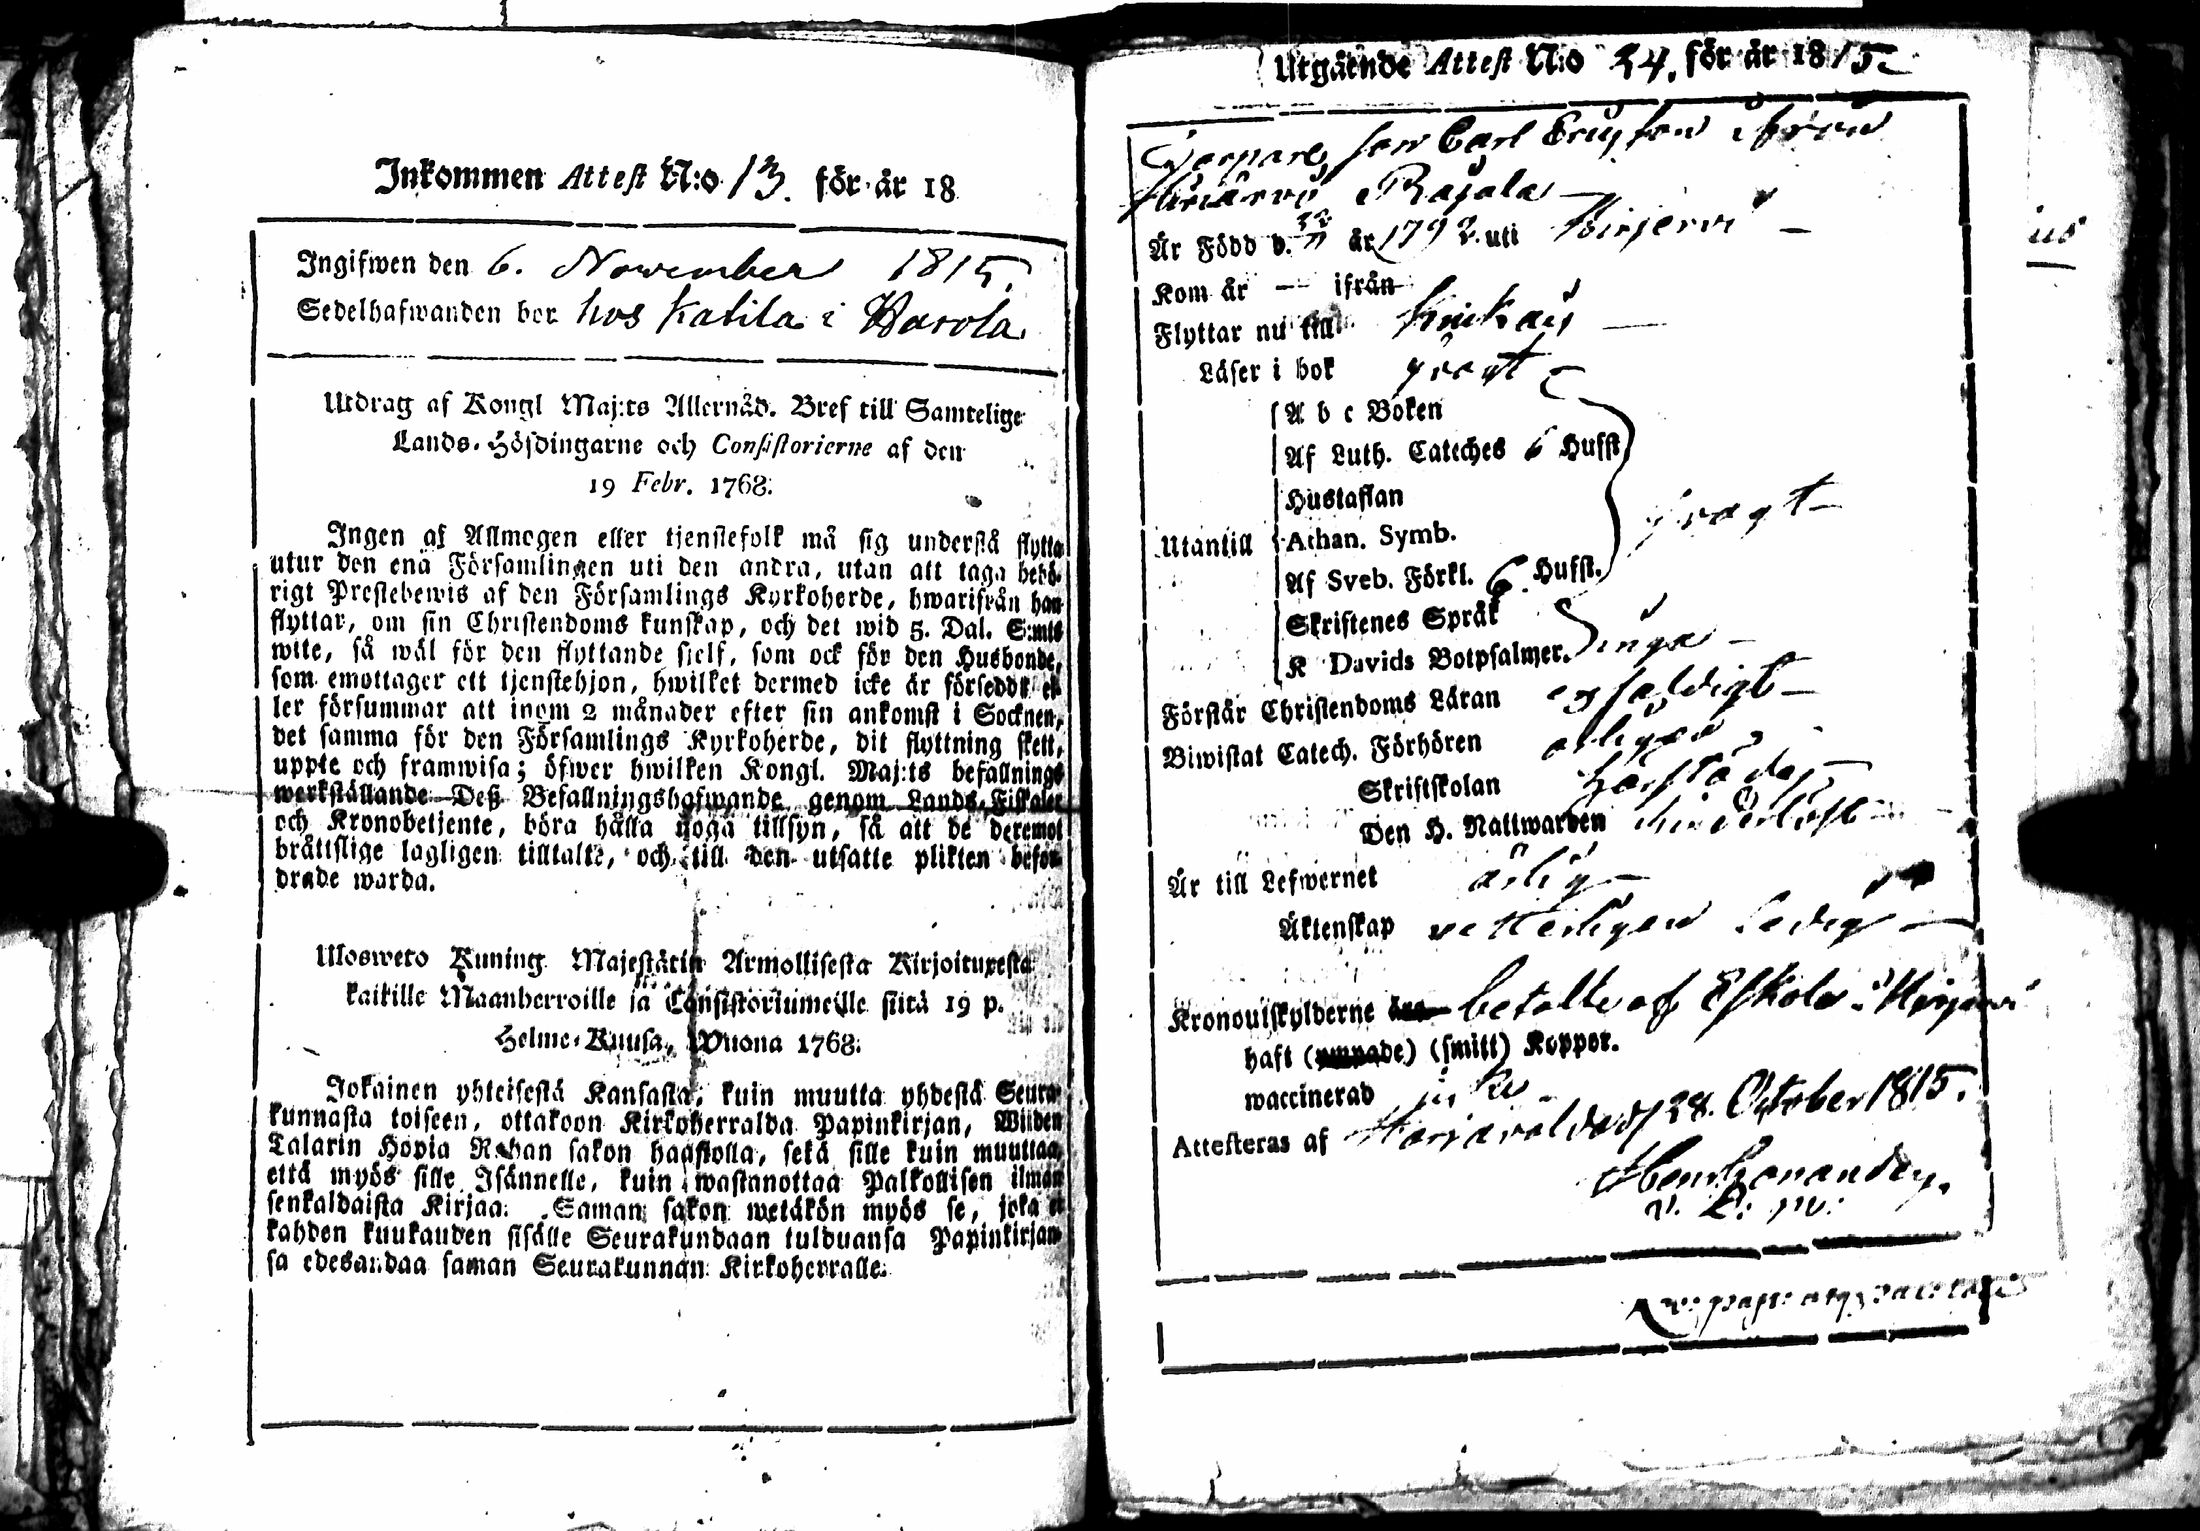 Inkommen Attest N:o 13. för år 18
Ingifwen den 6. November 1815.
Sedelhafwanden bor hos Katila i Harola
Utdrag af Kongl Maj:ts Allernåd. Bref till Samtelige
Lands-Höfdingarne och Consistorierne af den
19 Febr. 1768.
Ingen af Allmogen eller tjenstefolk må sig understå flytta
utur den ena Församlingen uti den andra, utan att taga behö-
rigt Prestebewis af den Församlings Kyrkoherde, hwarifrån han
flyttar, om sin Christendoms kunskap, och det wid 5. Dal. S:mts
wite, så wäl för den flyttande sjelf, som ock för den Husbonde,
som emottager ett tjenstehjon, hwilket dermed icke är försedd; el-
ler försummar att inom 2 månader efter sin ankomst i Socknen,
det samma för den Församlings Kyrkoherde, dit flyttning skett,
uppte och framwisa; öfwer hwilken Kongl. Maj:ts befallnings
werkställande Deß Befallningshafwande genom Lands-Fiskaler
och Kronobetjente, böra hålla noga tillsyn, så att de deremot
bråttslige lagligen tilltalte, och till den utsatte plikten befor-
drade warda.
Ulosweto Kuning. Majestätin Armollisesta Kirjoituxesta
kaikille Maanherroille ja Consistoriumeille siitä 19 p.
Helme-Kuusa, Wuona 1768.
Jokainen yhteisestä Kansasta, kuin muutta yhdestä Seura-
kunnasta toiseen, ottakoon Kirkoherralda Papinkirjan, Wiiden
Talarin Hopia Rahan sakon haastolla, sekä sille kuin muuttaa,
että myös sille Isännelle, kuin wastanottaa Palkollisen ilman
senkaldaista Kirjaa. Saman sakon wetäkön myös se, joka ei
kahden kuukauden sisälle Seurakundaan tulduansa Papinkirjan-
sa edesandaa saman Seurakunnan Kirkoherralle.
Utgående Attest N:o 34. för år 1815
son Carl Ericsson ifrån
Rajala
Är Född d. år 1792 uti Hirjervi
Kom år — ifrån
Flyttar nu till Kiukais
Läser i bok
A b c Boken
Af Luth. Cateches 6 Hufst
Hustaflan
Utantill Athan. Symb.
Af Sveb. Förkl. 6 Hufst.
Skriftenes Språk
K Davids Botpsalmer. inga
Förstår Christendoms Läran enfaldigt
Biwistat Catech. Förhören årligen
Skriftskolan
Den H. Nattwarden
Är till Lefwernet ärlig
Äktenskap veterligen ledig
Kronoutskylderne betalte af Eskola i Hirjerwi
haft (ympade) (smitt) Koppor.
waccinerad icke
Attesteras af Harjavalda d 28. October 1815.